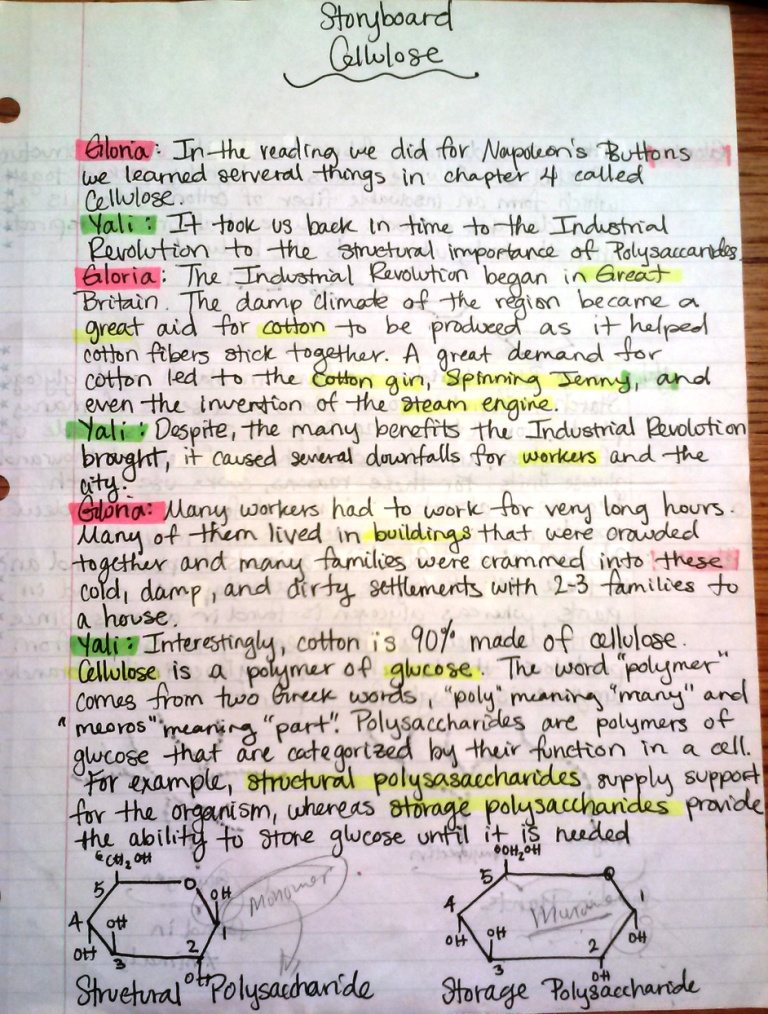 Storyboard
Cellulose
Gloria: In the reading we did for Napoleon's Buttons
we learned serveral things in chapter 4 called
Cellulose.
Yali: It took us back in time to the Industrial
Revolution to the structural importance of Polysaccarides
Gloria: The Industrial Revolution began in Great
Britain. The damp climate of the region became a
great aid for cotton to be produced as it helped
cotton fibers stick together. A great demand for
cotton led to the cotton gin, Spinning Jenny, and
even the invention of the steam engine.
Yali: Despite, the many benefits the Industrial Revolution
brought, it caused several downfalls for workers and the
city.
Gloria: Many workers had to work for very long hours.
Many of them lived in buildings that were crowded
together and many families were crammed into these
cold, damp, and dirty settlements with 2-3 families to
a house.
Yali: Interestingly, cotton is 90% made of cellulose.
Cellulose is a polymer of glucose. The word "polymer"
comes from two Greek words, "poly" meaning "many" and
"meoros" meaning "part". Polysaccharides are polymers of
glucose that are categorized by their function in a cell.
For example, structural polysasaccharides supply support
for the organism, whereas storage polysaccharides provide
the ability to store glucose until it is needed
6 CH2OH
5 O OH
Monomer
4 OH 1
OH 3 2
OH
Structural Polysaccharide
6 OH2OH
5 O
4 1
OH OH OH
3 2
OH
Storage Polysaccharide